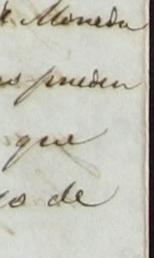 Moneda
pueden
que
de